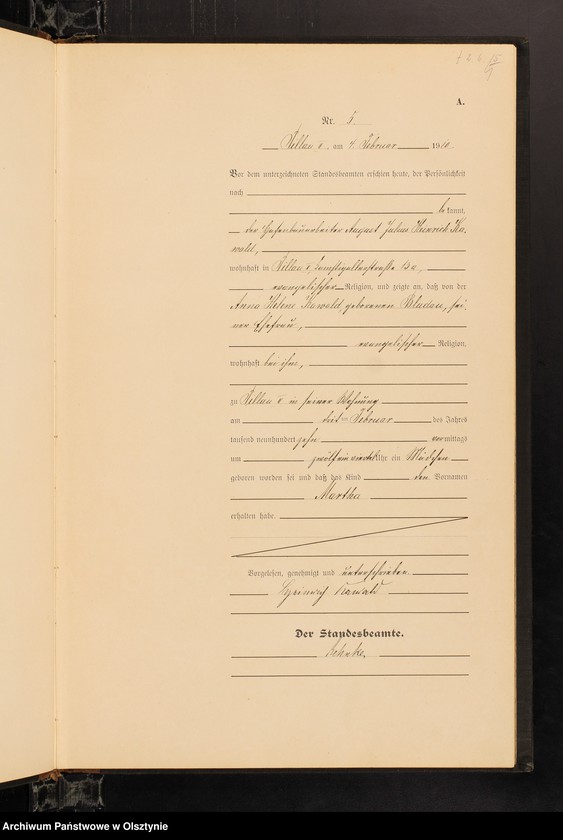 A.
Nr. 5
Pillau II. am 4. Februar 1910.
Vor dem unterzeichneten Standesbeamten erschien heute, der Persönlichkeit
nach
bekannt,
der Hafenbauarbeiter August Julius Heinrich Ka-
wald,
wohnhaft in Pillau II,
evangelischer Religion, und zeigte an, daß von der
Anna Helene Kawald, geborenen Bludau, sei-
ner Ehefrau,
evangelischer Religion,
wohnhaft bei ihm,
zu Pillau II in seiner Wohnung
am dritten Februar des Jahres
tausend neunhundert zehn vormittags
um zwölf ein viertel Uhr ein Mädchen
geboren worden sei und daß das Kind den Vornamen
Martha
erhalten habe.
Vorgelesen, genehmigt und unterschrieben.
Heinrich Kawald
Der Standesbeamte.
Archiwum Państwowe w Olsztynie